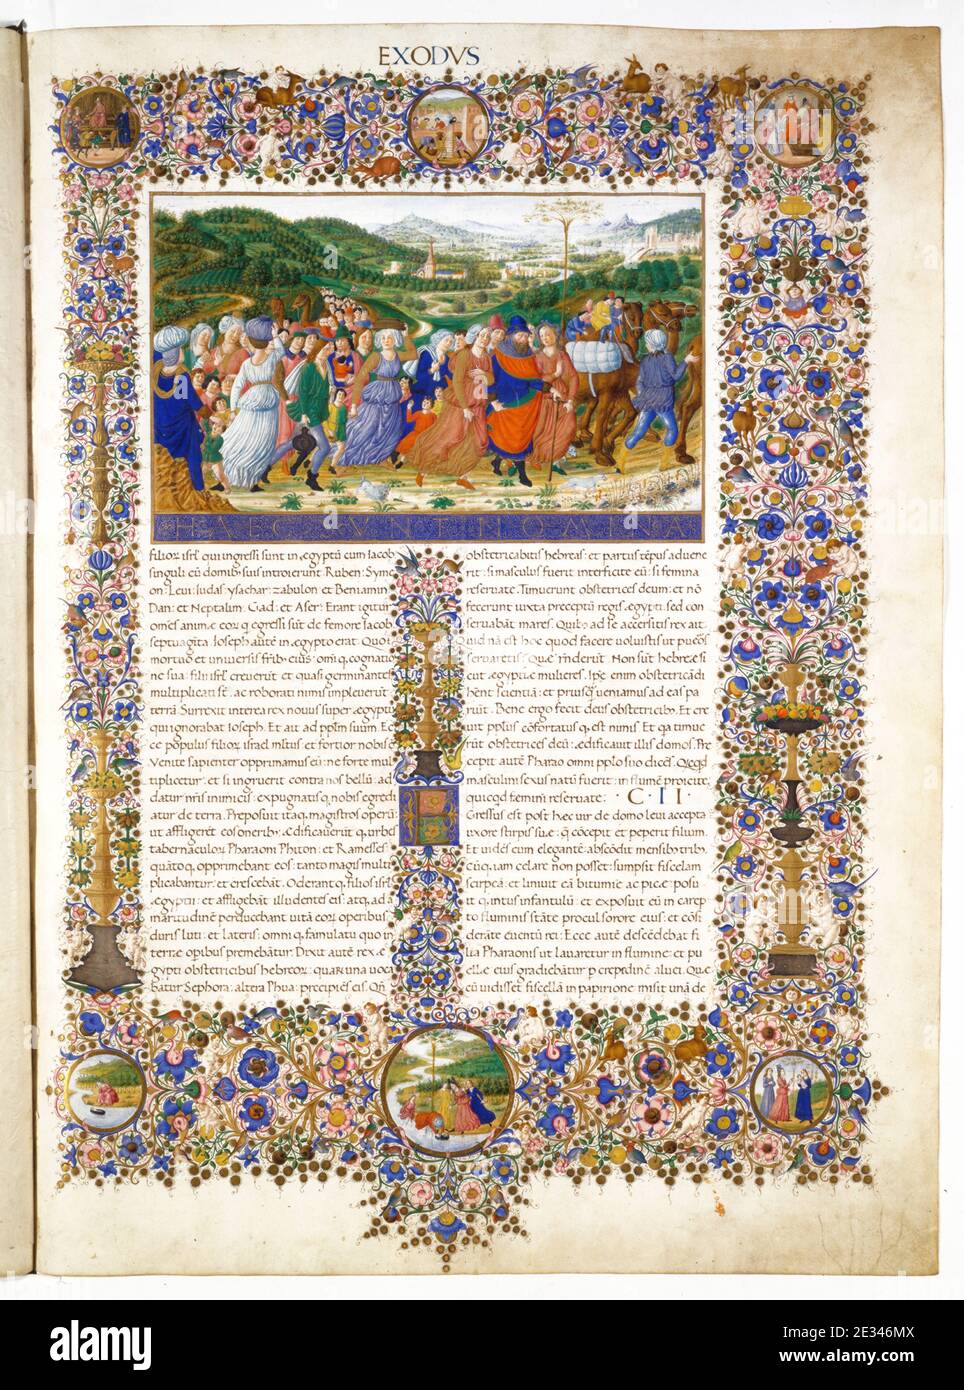 EXODVS
HAEC SVNT NOMINA
filior isrl qui ingressi sunt in egyptū cum Iacob
singuli cū domib suis introierunt Ruben: Sym
on: Leui: Iudas: ysachar: zabulon et Beniamin
Dan: et Neptalim: Gad: et Aser: Erant igitur
om̄es animæ eor q̄ egressi sūt de femore Iacob
septuagīta Ioseph autē in egypto erat: Quo
mortuo et uniuersis frīb eius: om̄i q. cognatio
ne sua: filii isrl creuerūt et quasi germinantes
multiplicati st̄: ac roborati nimis impleuerūt
terrā: Surrexit interea rex nouus super egyptū
qui ignorabat Ioseph: Et ait ad pplm suum: Ec
ce populus filior israel mltus et fortior nobis:
Venite sapienter opprimamus eū: ne forte mul
tiplicetur: et si ingruerit contra nos bellū: ad
datur nris inimicis: expugnatis q. nobis egredi
atur de terra: Preposuit ita q. magistros operū
ut affligeret eos oneribꝰ: edificauerūt q. urbes
tabernaculor Pharaoni Phiton: et Ramesses
quāto q. opprimebant eos: tanto magis multi
plicabantur: et crescebāt: Oderant q. filios isrl
egyptii: et affligebāt illudentes eis: atq. ad a
maritudinē perducebant uitā eor operibus
duris luti: et lateris: omni q. famulatu quo in
terræ opibus premebātur: Dixit autē rex e
gypti obstetricibus hebreor: quar una uoca
batur Sephora: altera Phua: precipiēs eis: Qn̄
obstetricabitis hebreas: et partus tēpus aduene
rit: si masculus fuerit interficite eū: si femina
reseruate: Timuerunt obstetrices deum: et nō
fecerunt iuxta preceptū regis egypti: sed con
seruabāt mares: Quibꝰ ad se accersitis rex ait:
uid nā est hoc quod facere uoluistis ut pueros
seruaretis: Quæ rn̄derūt: Non sūt hebreæ si
cut egyptiæ mulieres: Ipsæ enim obstetricādi
hēnt scientiā: et priusq̄ ueniamus ad eas pa
riūt: Bene ergo fecit deus obstetricibꝰ: Et cre
uit pplus: cōfortatus q. est nimis: Et q̄a timue
rūt obstetrices deū: edificauit illis domos: Pre
cepit autē Pharao omni pplo suo dicēs: Qcqd
masculini sexus natū fuerit: in flumē proicite:
quicqd feminini reseruate: C·II·
Gressus est post hec uir de domo leui accepta
uxore stirpis suæ: q̄ cōcepit et peperit filium:
Et uidēs eum elegantē: abscōdit mensibꝰ tribꝰ:
Cūq. iam celare non posset: sumpsit fiscellam
scirpeā: et liniuit eā bitumine ac pice: posu
it q. intus infantulū: et exposuit eū in carec
to fluminis stāte procul sorore eius: et cōsi
derāte euentū rei: Ecce autē descēdebat fi
lia Pharaonis ut lauaretur in flumine: et pu
ellæ eius gradiebātur p crepidinē aluei: Quæ
cū uidisset fiscellā in papirione misit unā de
alamy
alamy
Image ID: 2E346MX
www.alamy.com